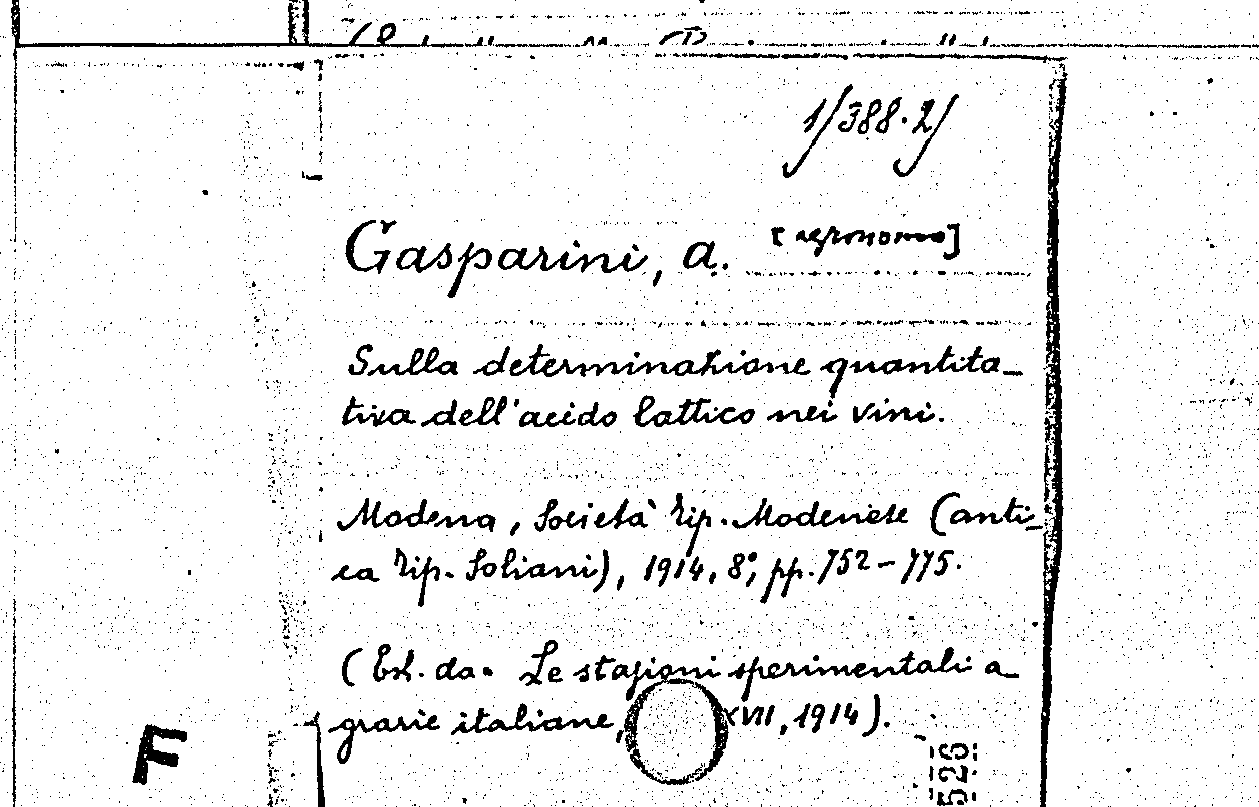 1/388.2/
Gasparini, a. [agronomo]
Sulla determinazione quantita-
tiva dell'acido lattico nei vini.
Modena, Società Tip. Modenese (anti-
ca Tip. Soliani), 1914, 8°, pp. 752-775.
(Est. da. Le stazioni sperimentali a-
grarie italiane, XVII, 1914).
F
526